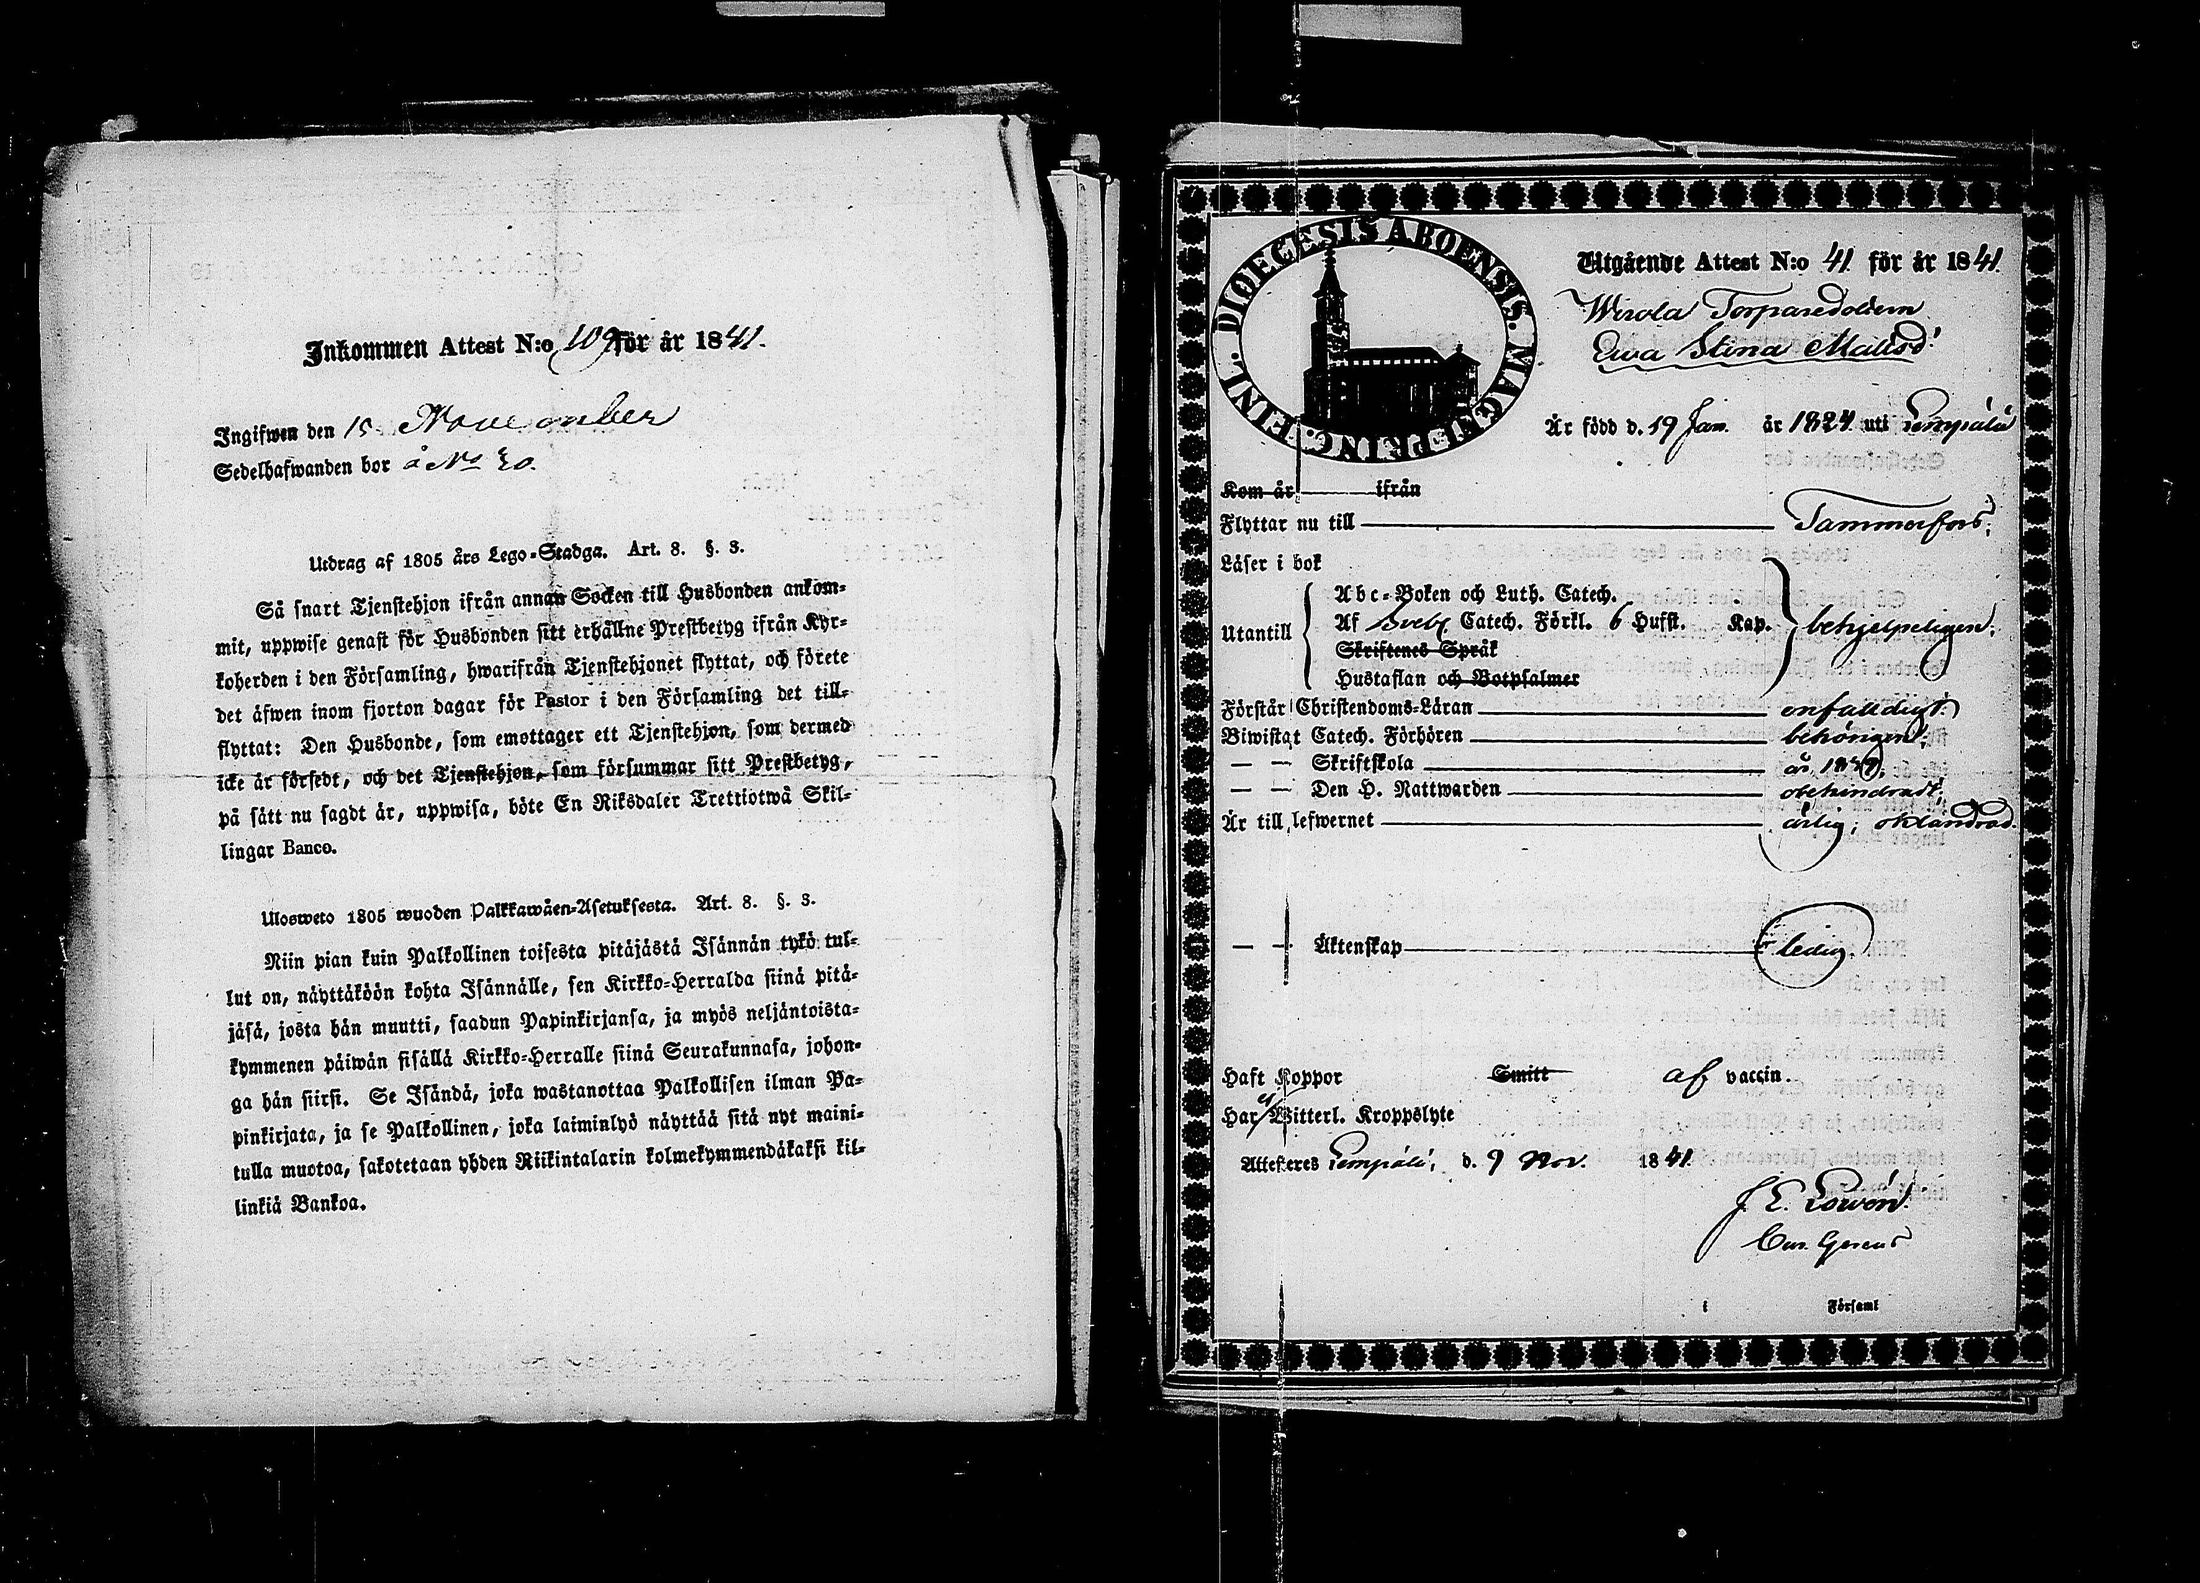 Inkommen Attest N:o 109 för år 1841.
Ingifwen den 15 November
Sedelhafwanden bor å No 20.
Utdrag af 1805 års Lego-Stadga. Art. 8. §. 3.
Så snart Tjenstehjon ifrån annan Socken till Husbonden ankom-
mit, uppwise genast för Husbonden sitt erhållne Prestbetyg ifrån Kyr-
koherden i den Församling, hwarifrån Tjenstehjonet flyttat, och förete
det äfwen inom fjorton dagar för Pastor i den Församling det till-
flyttat: Den Husbonde, som emottager ett Tjenstehjon, som dermed
icke är försedt, och det Tjenstehjon, som försummar sitt Prestbetyg,
på sätt nu sagdt är, uppwisa, böte En Riksdaler Trettiotwå Skil-
lingar Banco.
Ulosweto 1805 wuoden Palkkawäen-Asetuksesta. Art. 8. §. 3.
Niin pian kuin Palkollinen toisesta pitäjästä Isännän tykö tul-
lut on, näyttäköön kohta Isännälle, sen Kirkko-Herralda siinä pitä-
jäsä, josta hän muutti, saadun Papinkirjansa, ja myös neljäntoista-
kymmenen päiwän sisällä Kirkko-Herralle siinä Seurakunnasa, johon-
ga hän siirsi. Se Isändä, joka wastanottaa Palkollisen ilman Pa-
pinkirjata, ja se Palkollinen, joka laiminlyö näyttää sitä nyt maini-
tulla muotoa, sakotetaan yhden Riikintalarin kolmekymmendäkaksi kil-
linkiä Bankoa.
DIOECESIS ABOENSIS. MAGNI PRINC. FINL.
Utgående Attest N:o 41 för år 1841.
Wirola Torparedottern
Ewa Stina Matisd:
Är född d. 19 Jan. år 1824 uti Lempälä
Kom år ifrån
Flyttar nu till Tammerfors;
Läser i bok
Utantill
Abc-Boken och Luth. Catech.
Af Sveb. Catech. Förkl. 6 Hufst. Kap. behjelpeligen;
Skriftenes Språk
Hustaflan och Botpsalmer
Förstår Christendoms-Läran enfaldigt;
Biwistat Catech. Förhören behörigen;
— — Skriftskola år 1839;
— — Den H. Nattwarden obehindradt;
Är till lefwernet ärlig; oklandrad.
— — Äktenskap ledig.
Haft Koppor Smitt af vaccin.
Har ej Witterl. Kroppslyte
Attesteres Lempälä, d. 9 Nov. 1841.
J. E.
i Församl